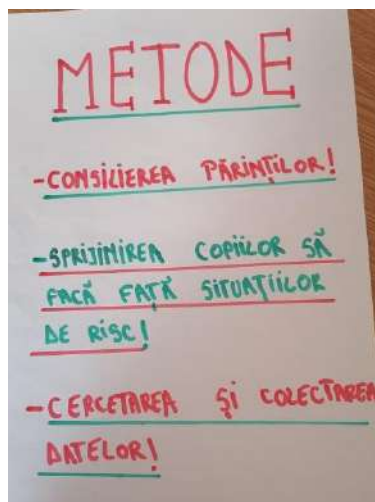 METODE
-CONSILIEREA PĂRINȚILOR!
-SPRIJINIREA COPIILOR SĂ
FACĂ FAȚĂ SITUAȚIILOR
DE RISC!
-CERCETAREA ȘI COLECTAREA
DATELOR!